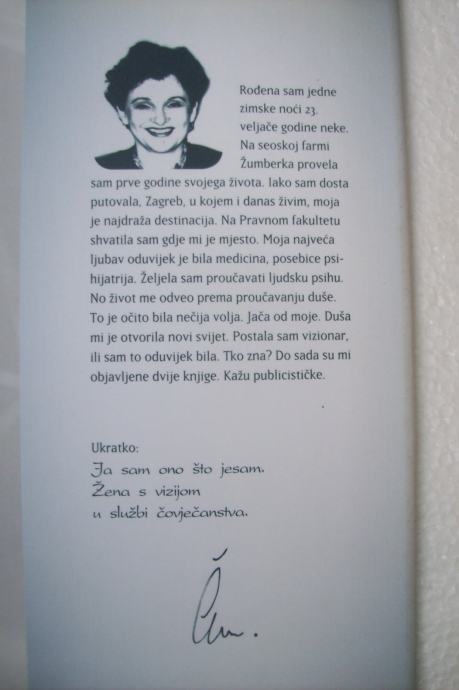 Rođena sam jedne
zimske noći 23.
veljače godine neke.
Na seoskoj farmi
Žumberka provela
sam prve godine svojega života. Iako sam dosta
putovala, Zagreb, u kojem i danas živim, moja
je najdraža destinacija. Na Pravnom fakultetu
shvatila sam gdje mi je mjesto. Moja najveća
ljubav oduvijek je bila medicina, posebice psi-
hijatrija. Željela sam proučavati ljudsku psihu.
No život me odveo prema proučavanju duše.
To je očito bila nečija volja. Jača od moje. Duša
mi je otvorila novi svijet. Postala sam vizionar,
ili sam to oduvijek bila. Tko zna? Do sada su mi
objavljene dvije knjige. Kažu publicističke.
Ukratko:
Ja sam ono što jesam.
Žena s vizijom
u službi čovječanstva.